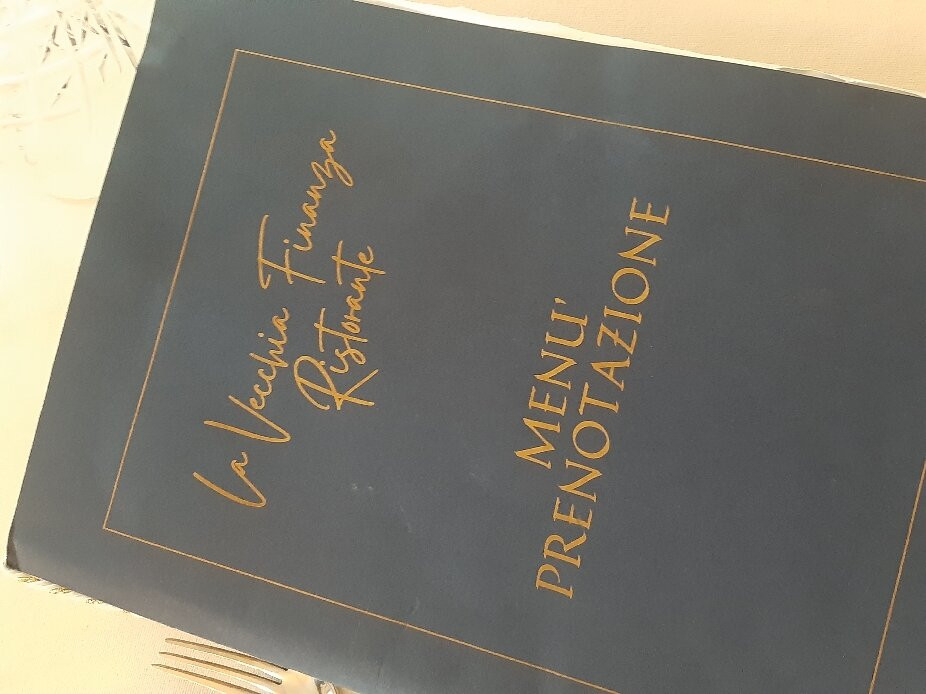 La Vecchia Finanza
Ristorante
MENU'
PRENOTAZIONE